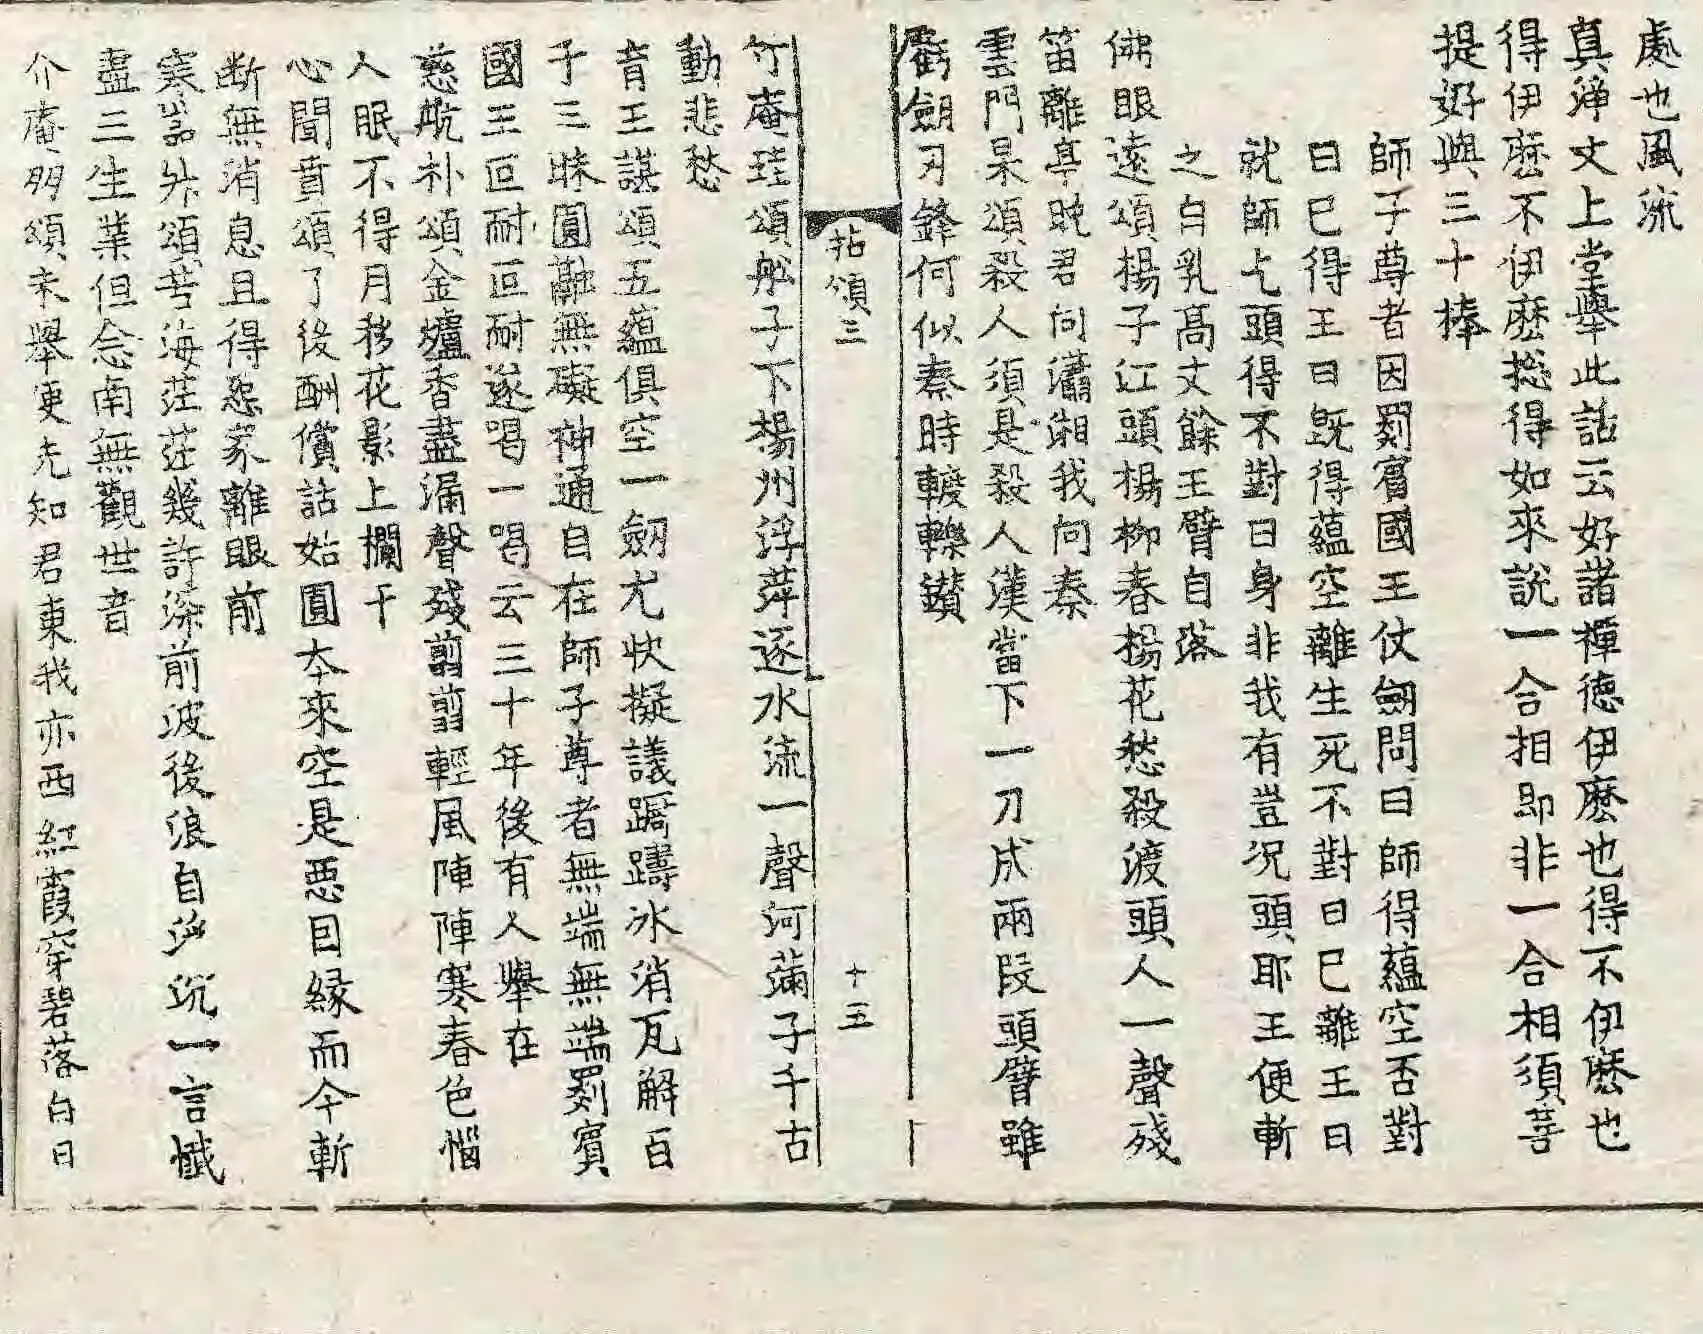 處也風流
真淨文上堂舉此話云好諸禪德伊麽也得不伊麽也
得伊麽不伊麽捴得如來說一合相即非一合相須菩
提好與三十棒
師子尊者因罽賓國王仗劒問曰師得蘊空否對
曰已得王曰旣得蘊空離生死不對曰已離王曰
就師乞頭得不對曰身非我有豈况頭耶王便斬
之白乳髙丈餘王臂自落
佛眼遠頌楊子江頭楊柳春楊花愁殺渡頭人一聲殘
笛離亭晩君向瀟湘我向秦
雲門杲頌殺人須是殺人漢當下一刀成兩段頭臂雖
虧劒刃鋒何似秦時轆轢鑚
拈頌三
十五
竹庵珪頌船子下楊州浮萍逐水流一聲河滿子千古
動悲愁
育王諶頌五蘊俱空一劒尤快擬議躊躇冰消瓦解百
千三昧圓融無礙神通自在師子尊者無端無端罽賓
國王叵耐叵耐遂喝一喝云三十年後有人舉在
慈航朴頌金爐香盡漏聲殘翦翦輕風陣陣寒春色惱
人眠不得月移花影上欄干
心聞賁頌了後酬償話始圓夲來空是惡因緣而今斬
断無消息且得怨家離眼前
寒嵓升頌苦海茫茫幾許深前波後浪自沉一言懺
盡三生業但念南無觀世音
介庵朋頌未舉便先知君東我亦西紅霞穿碧落白日